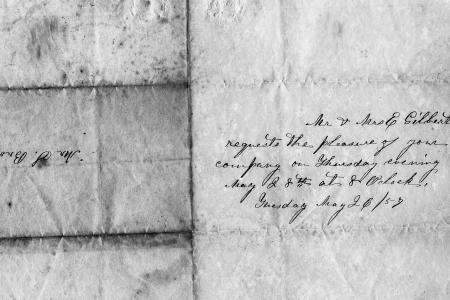 Mr & Mrs E Gilbert
requests the pleasure of your
company on Thursday evening
May 28th at 8 Oclock,
Tuesday May 26/57
Mr. S.